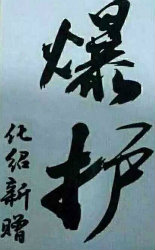 爆护
化绍新赠